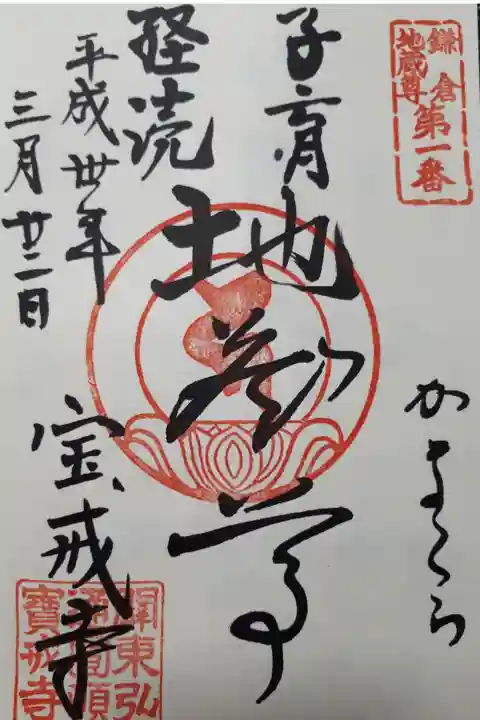 鎌倉
地蔵尊
第一番
かまくら
子育
経読
地蔵尊
平成卅年
三月廿二日
宝戒寺
關東弘
寶戒寺